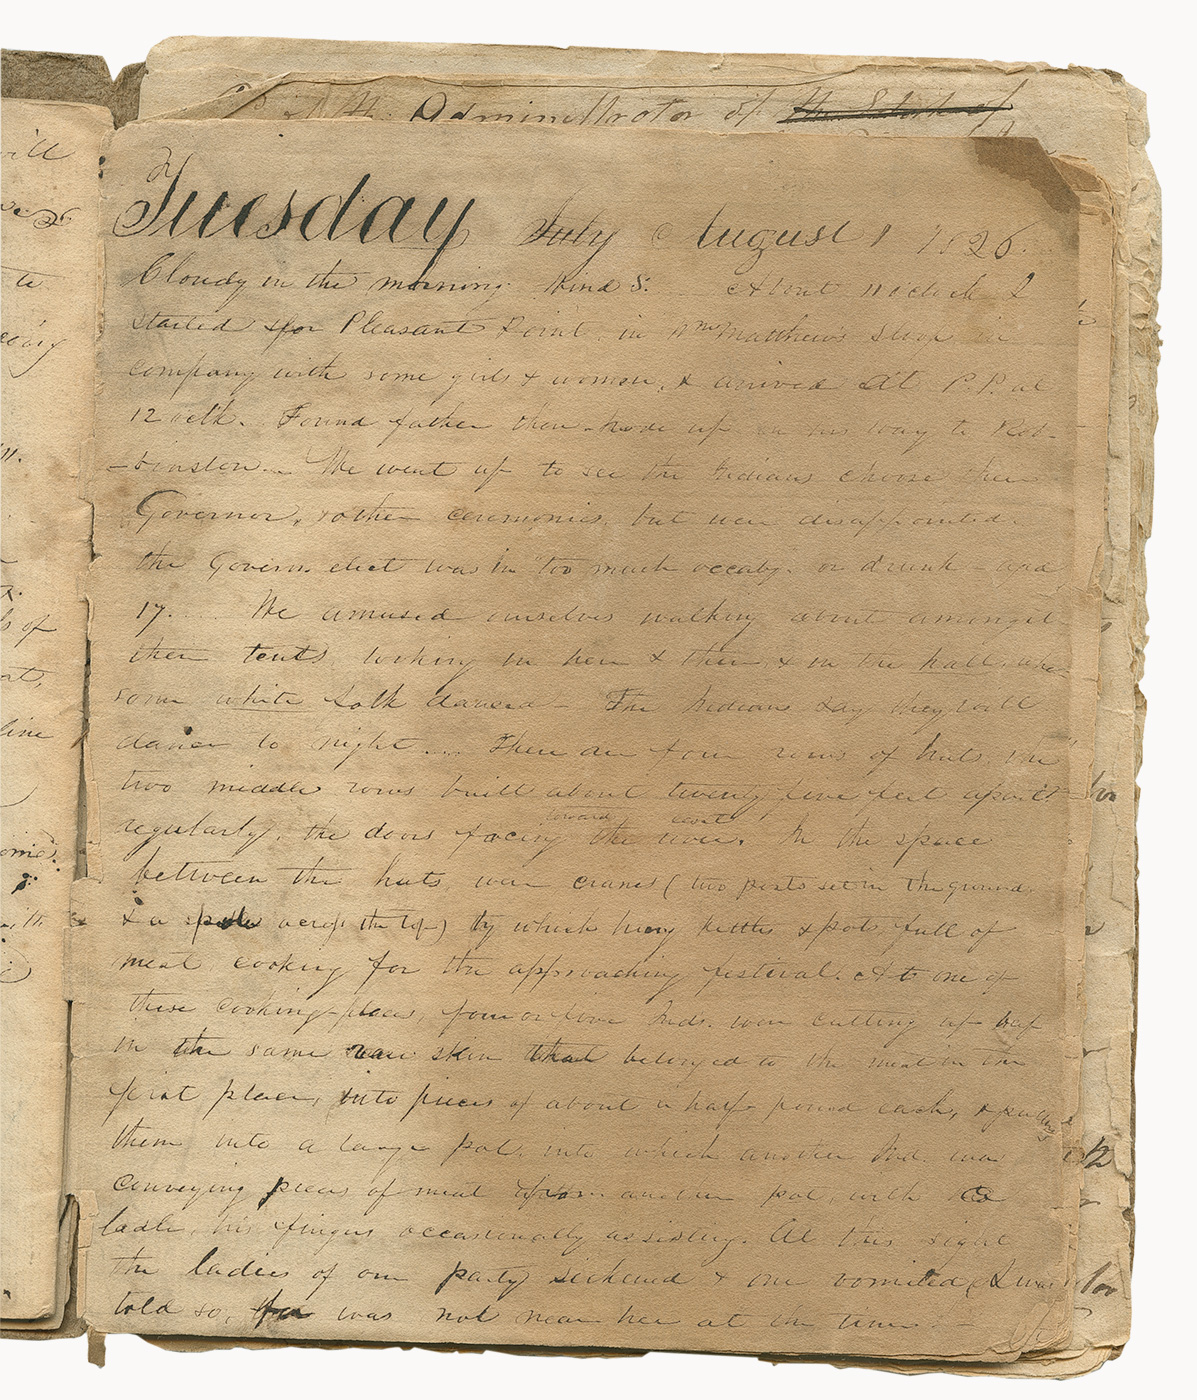 Administrator of the Estate of
Tuesday July August 1 1826.
Cloudy in the morning. Wind S. About 11 oclock I
started for Pleasant Point, in Wm Matthews sloop in
company with some girls & women, & arrived at P.P. at
12 oclk. Found father there. Rode up in his way to Rob-
-binston. We went up to see the Indians choose their
Governor, & other ceremonies, but were disappointed.
the Govern. elect was in too much or drunk
17. We amused ourselves walking about amongst
their tents looking in here & there, & in the hall, where
some white folk danced - The Indians say they will
dance to night ... There are four rows of huts, the
two middle rows built about twenty five feet apart
toward
regularly, the doors facing the river. In the space
between the huts, were cranes (two posts set in the ground
& a pole across the top) by which hung kettles & pots full of
meat cooking for the approaching festival. At one of
these cooking-places, four or five Inds. were cutting up beef
in the same raw skin that belonged to the meat in the
first place, into pieces of about a half pound each, & putting
them into a large pot, into which another Ind. was
conveying pieces of meat from another pot, with a
ladle, his fingers occasionally assisting. At this sight
the ladies of our party sickened & one vomited (I was
told so, for was not near her at the time) -
will
to
of
line
with